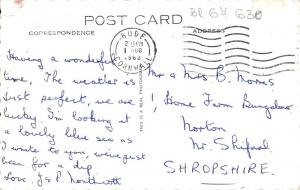 BR 67 G30
POST CARD
CORRESPONDENCE
ADDRESS
BUDE
2 15 PM
1 AUG
1963
CORNWALL
THIS IS A REAL PHOTOGRAPH
Having a wonderful
time. The weather is
just perfect, we are
lucky. I'm looking at
a lovely blue sea as
I write to you, we've just
been for a dip.
Love. J & P.
Mr & Mrs B. Morris
1, Home Farm Bungalow
Norton
Nr. Shifnal
SHROPSHIRE.